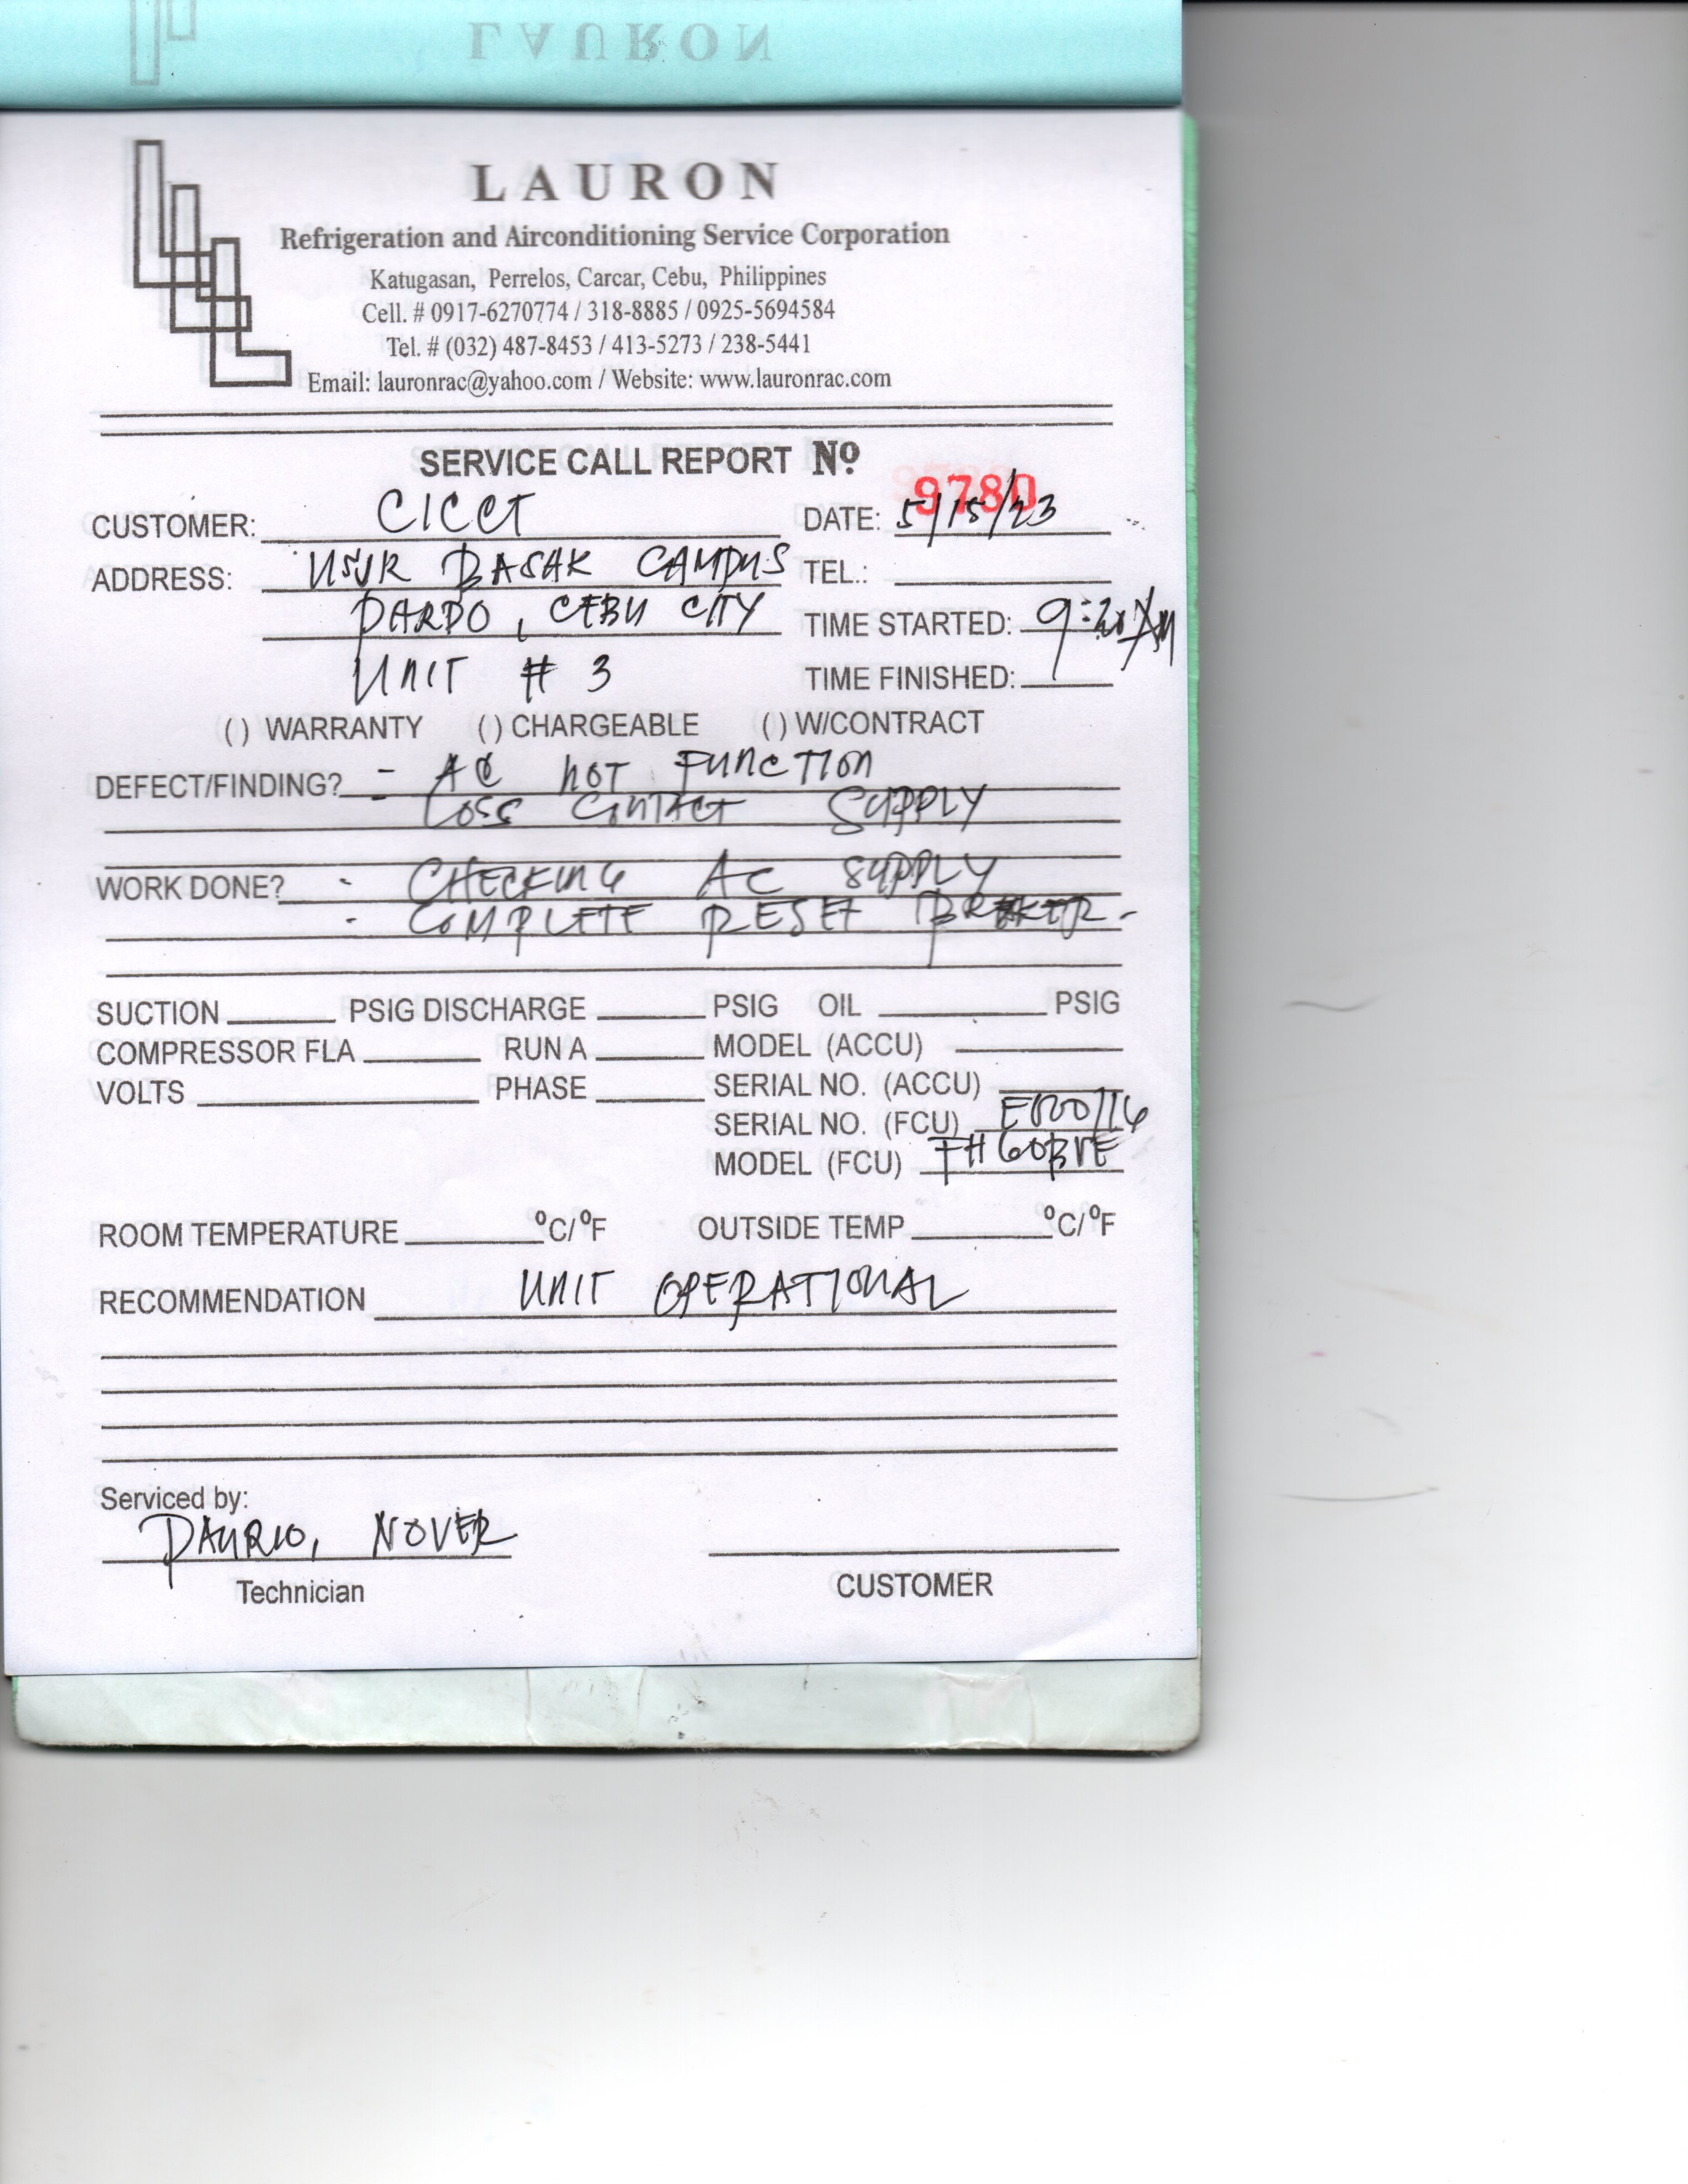 LAURON
LAURON
Refrigeration and Airconditioning Service Corporation
Katugasan, Perrelos, Carcar, Cebu, Philippines
Cell. # 0917-6270774 / 318-8885 / 0925-5694584
Tel. # (032) 487-8453 / 413-5273 / 238-5441
Email: lauronrac@yahoo.com / Website: www.lauronrac.com
SERVICE CALL REPORT Nº 9780
CUSTOMER: CICCT DATE: 5/15/23
ADDRESS: USJR BASAK CAMPUS TEL.:
PARDO, CEBU CITY TIME STARTED: 9:20 AM
UNIT # 3 TIME FINISHED:
( ) WARRANTY ( ) CHARGEABLE ( ) W/CONTRACT
DEFECT/FINDING? - AC NOT FUNCTION
- LOSS CONTACT SUPPLY
WORK DONE? - CHECKING AC SUPPLY
- COMPLETE RESET BREAKER -
SUCTION PSIG DISCHARGE PSIG OIL PSIG
COMPRESSOR FLA RUN A MODEL (ACCU)
VOLTS PHASE SERIAL NO. (ACCU)
SERIAL NO. (FCU)
MODEL (FCU) FH60BVE
ROOM TEMPERATURE ºC/ºF OUTSIDE TEMP ºC/ºF
RECOMMENDATION UNIT OPERATIONAL
Serviced by:
DAURIO, NOVER
Technician CUSTOMER